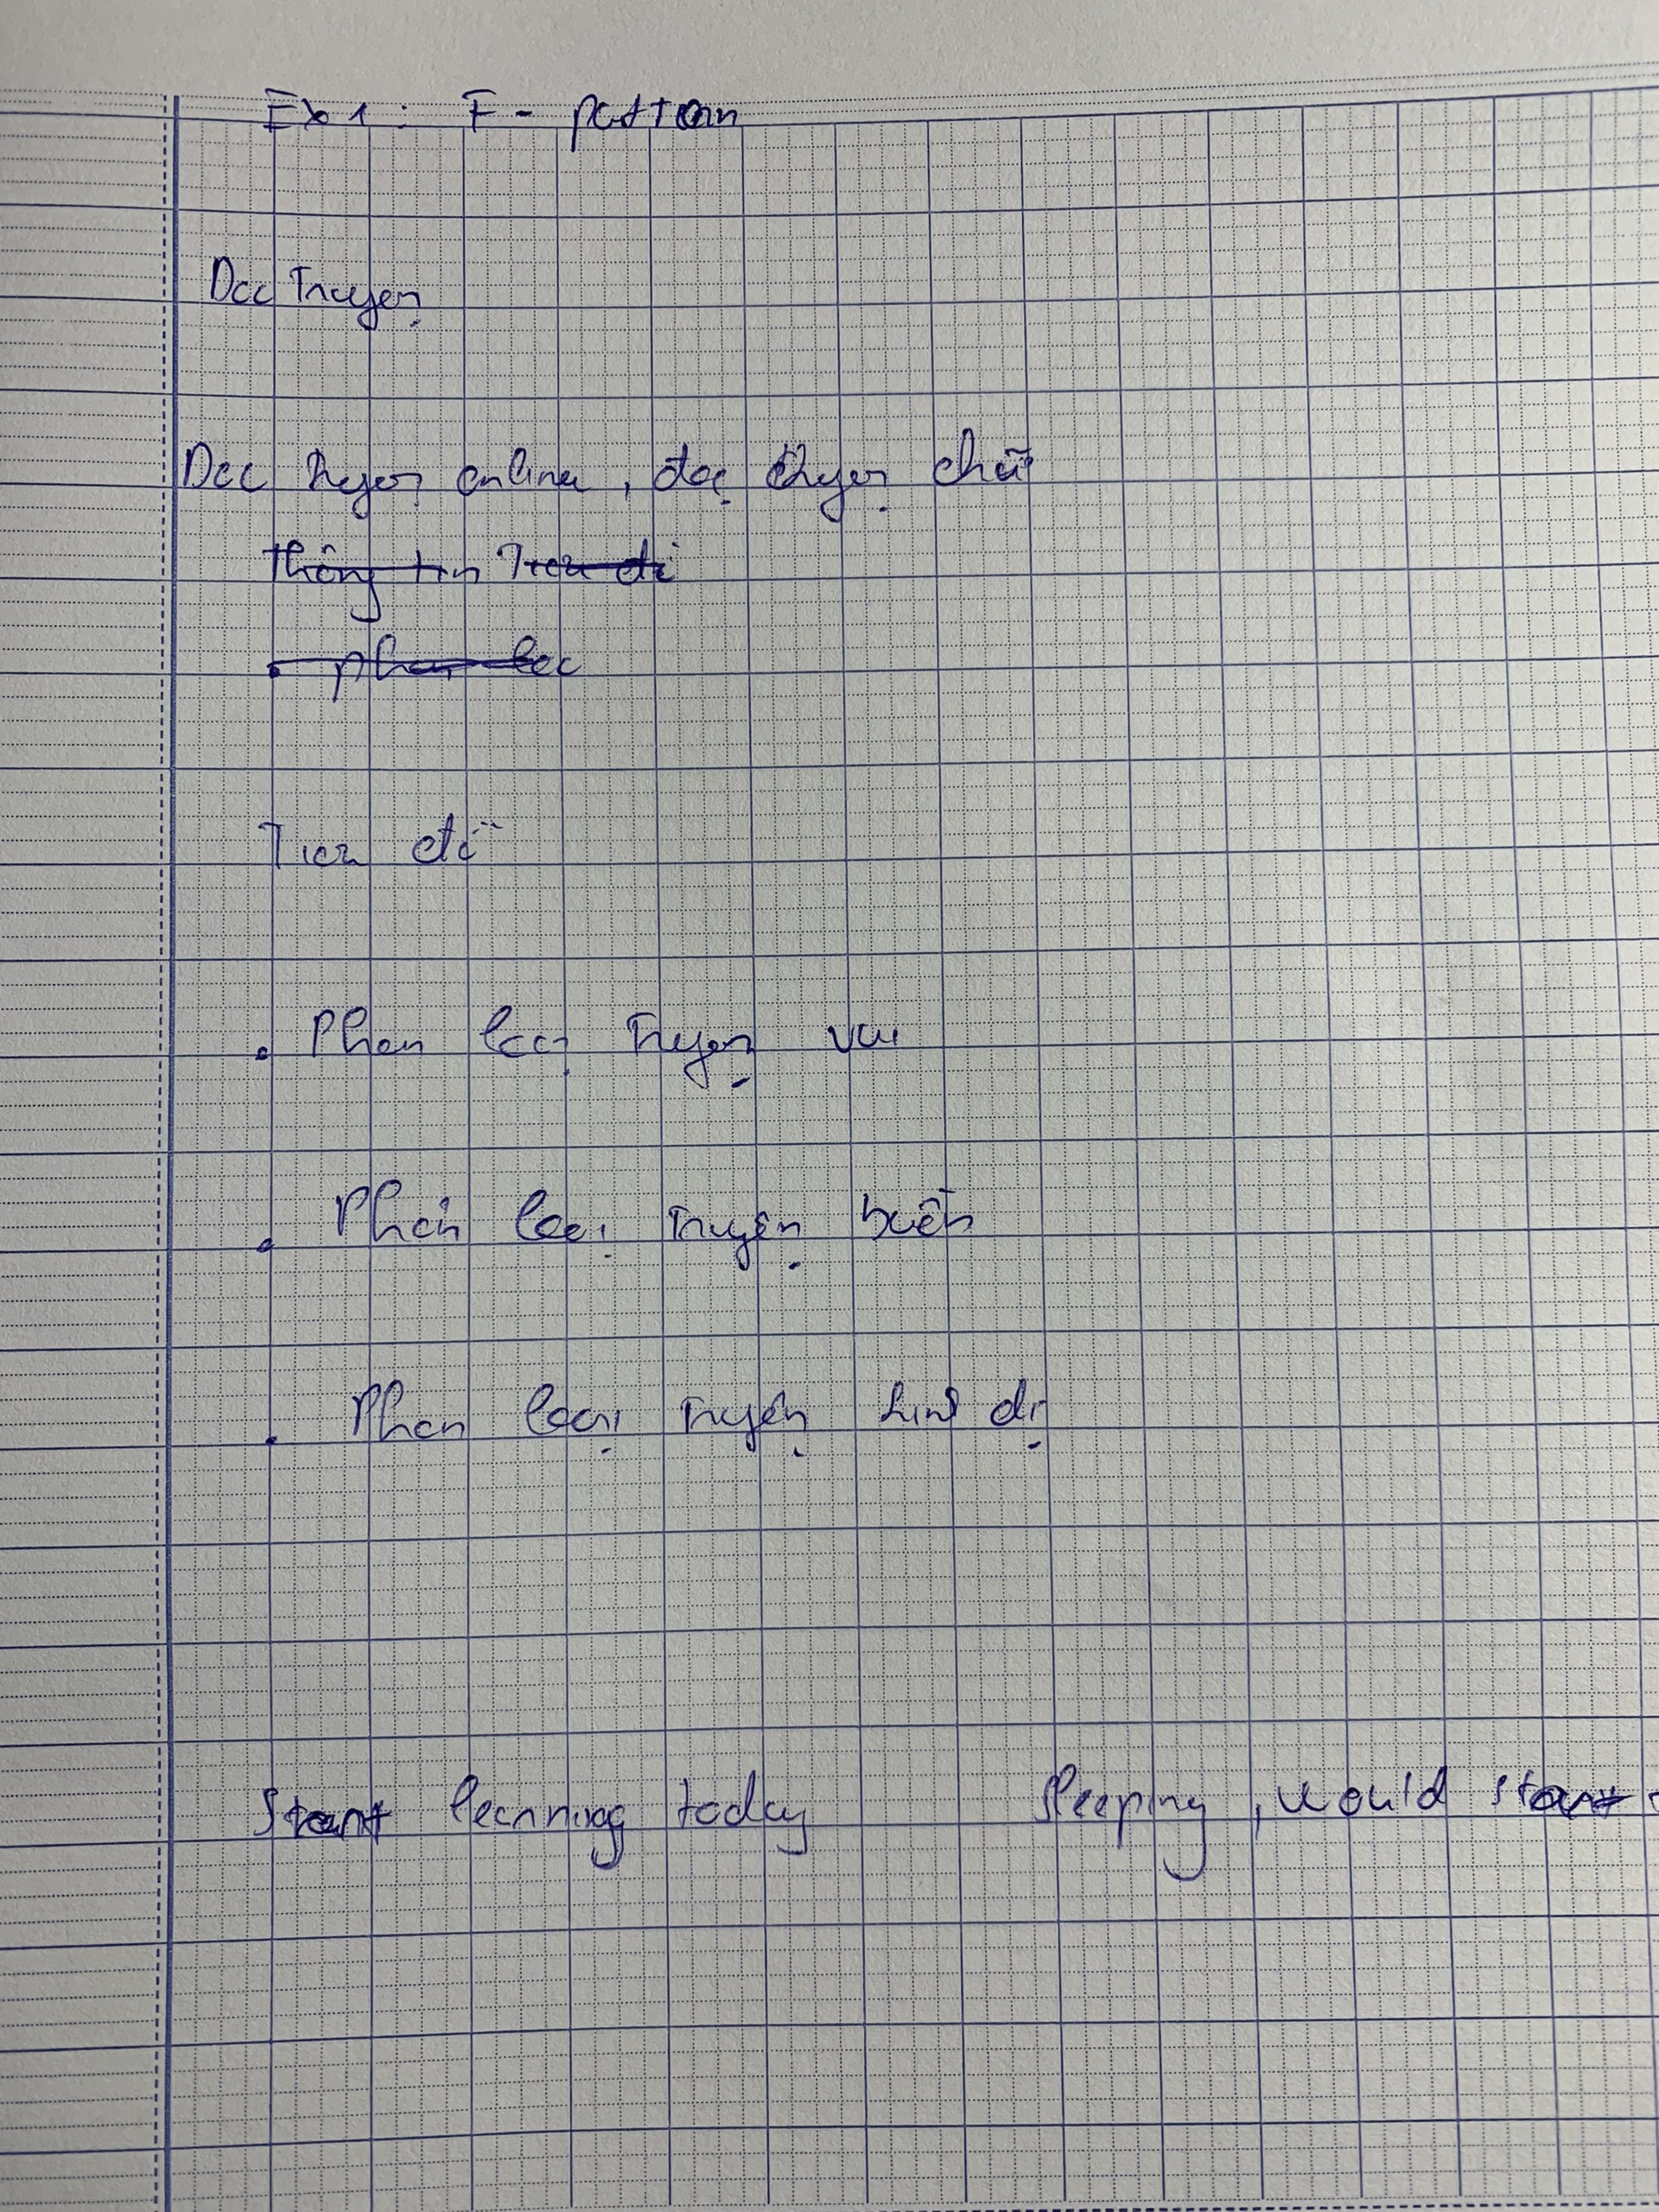 Ex 1 : F - pattern
Đọc Truyện
Đọc truyện online , đọc truyện chữ
thông tin Tiêu đề
• phân loc
Tiêu đề
• Phân loại Truyện vui
• Phân loại Truyện buồn
• Phân loại Truyện kinh dị
Start learning today sleeping , would start